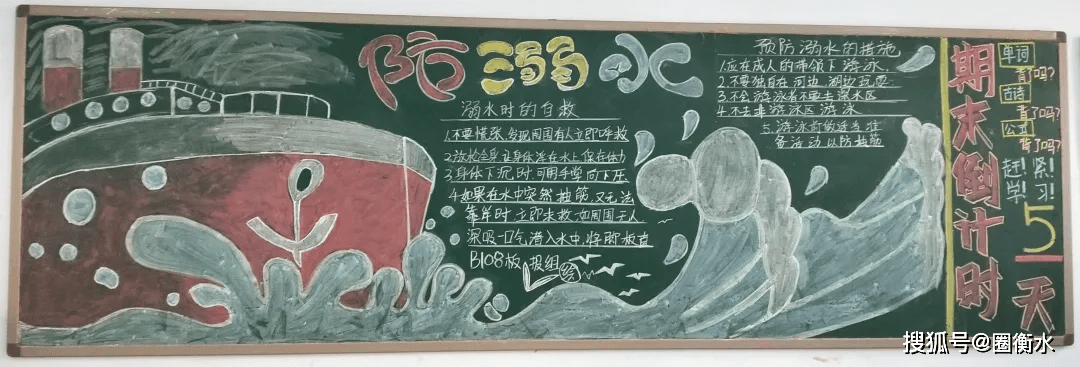 防溺水
溺水时的自救
1.不要慌张,发现周围有人立即呼救
2.放松全身,让身体浮在水上,保存体力
3.身体下沉时,可用手掌向下压
4.如果在水中突然抽筋,又无法
靠岸时,立即求救,如周围无人
深吸一口气潜入水中,将脚板直
B108板报组绘
预防溺水的措施
1.应在成人的带领下游泳.
2.不要独自在河边、湖边玩耍
3.不会游泳者不要去深水区
4.不去非游泳区游泳
5.游泳前做适当准
备活动以防抽筋
期末倒计时
单词
背了吗?
古诗
背了吗?
公式
背了吗?
赶紧!
学习!
5
天
搜狐号@圈衡水